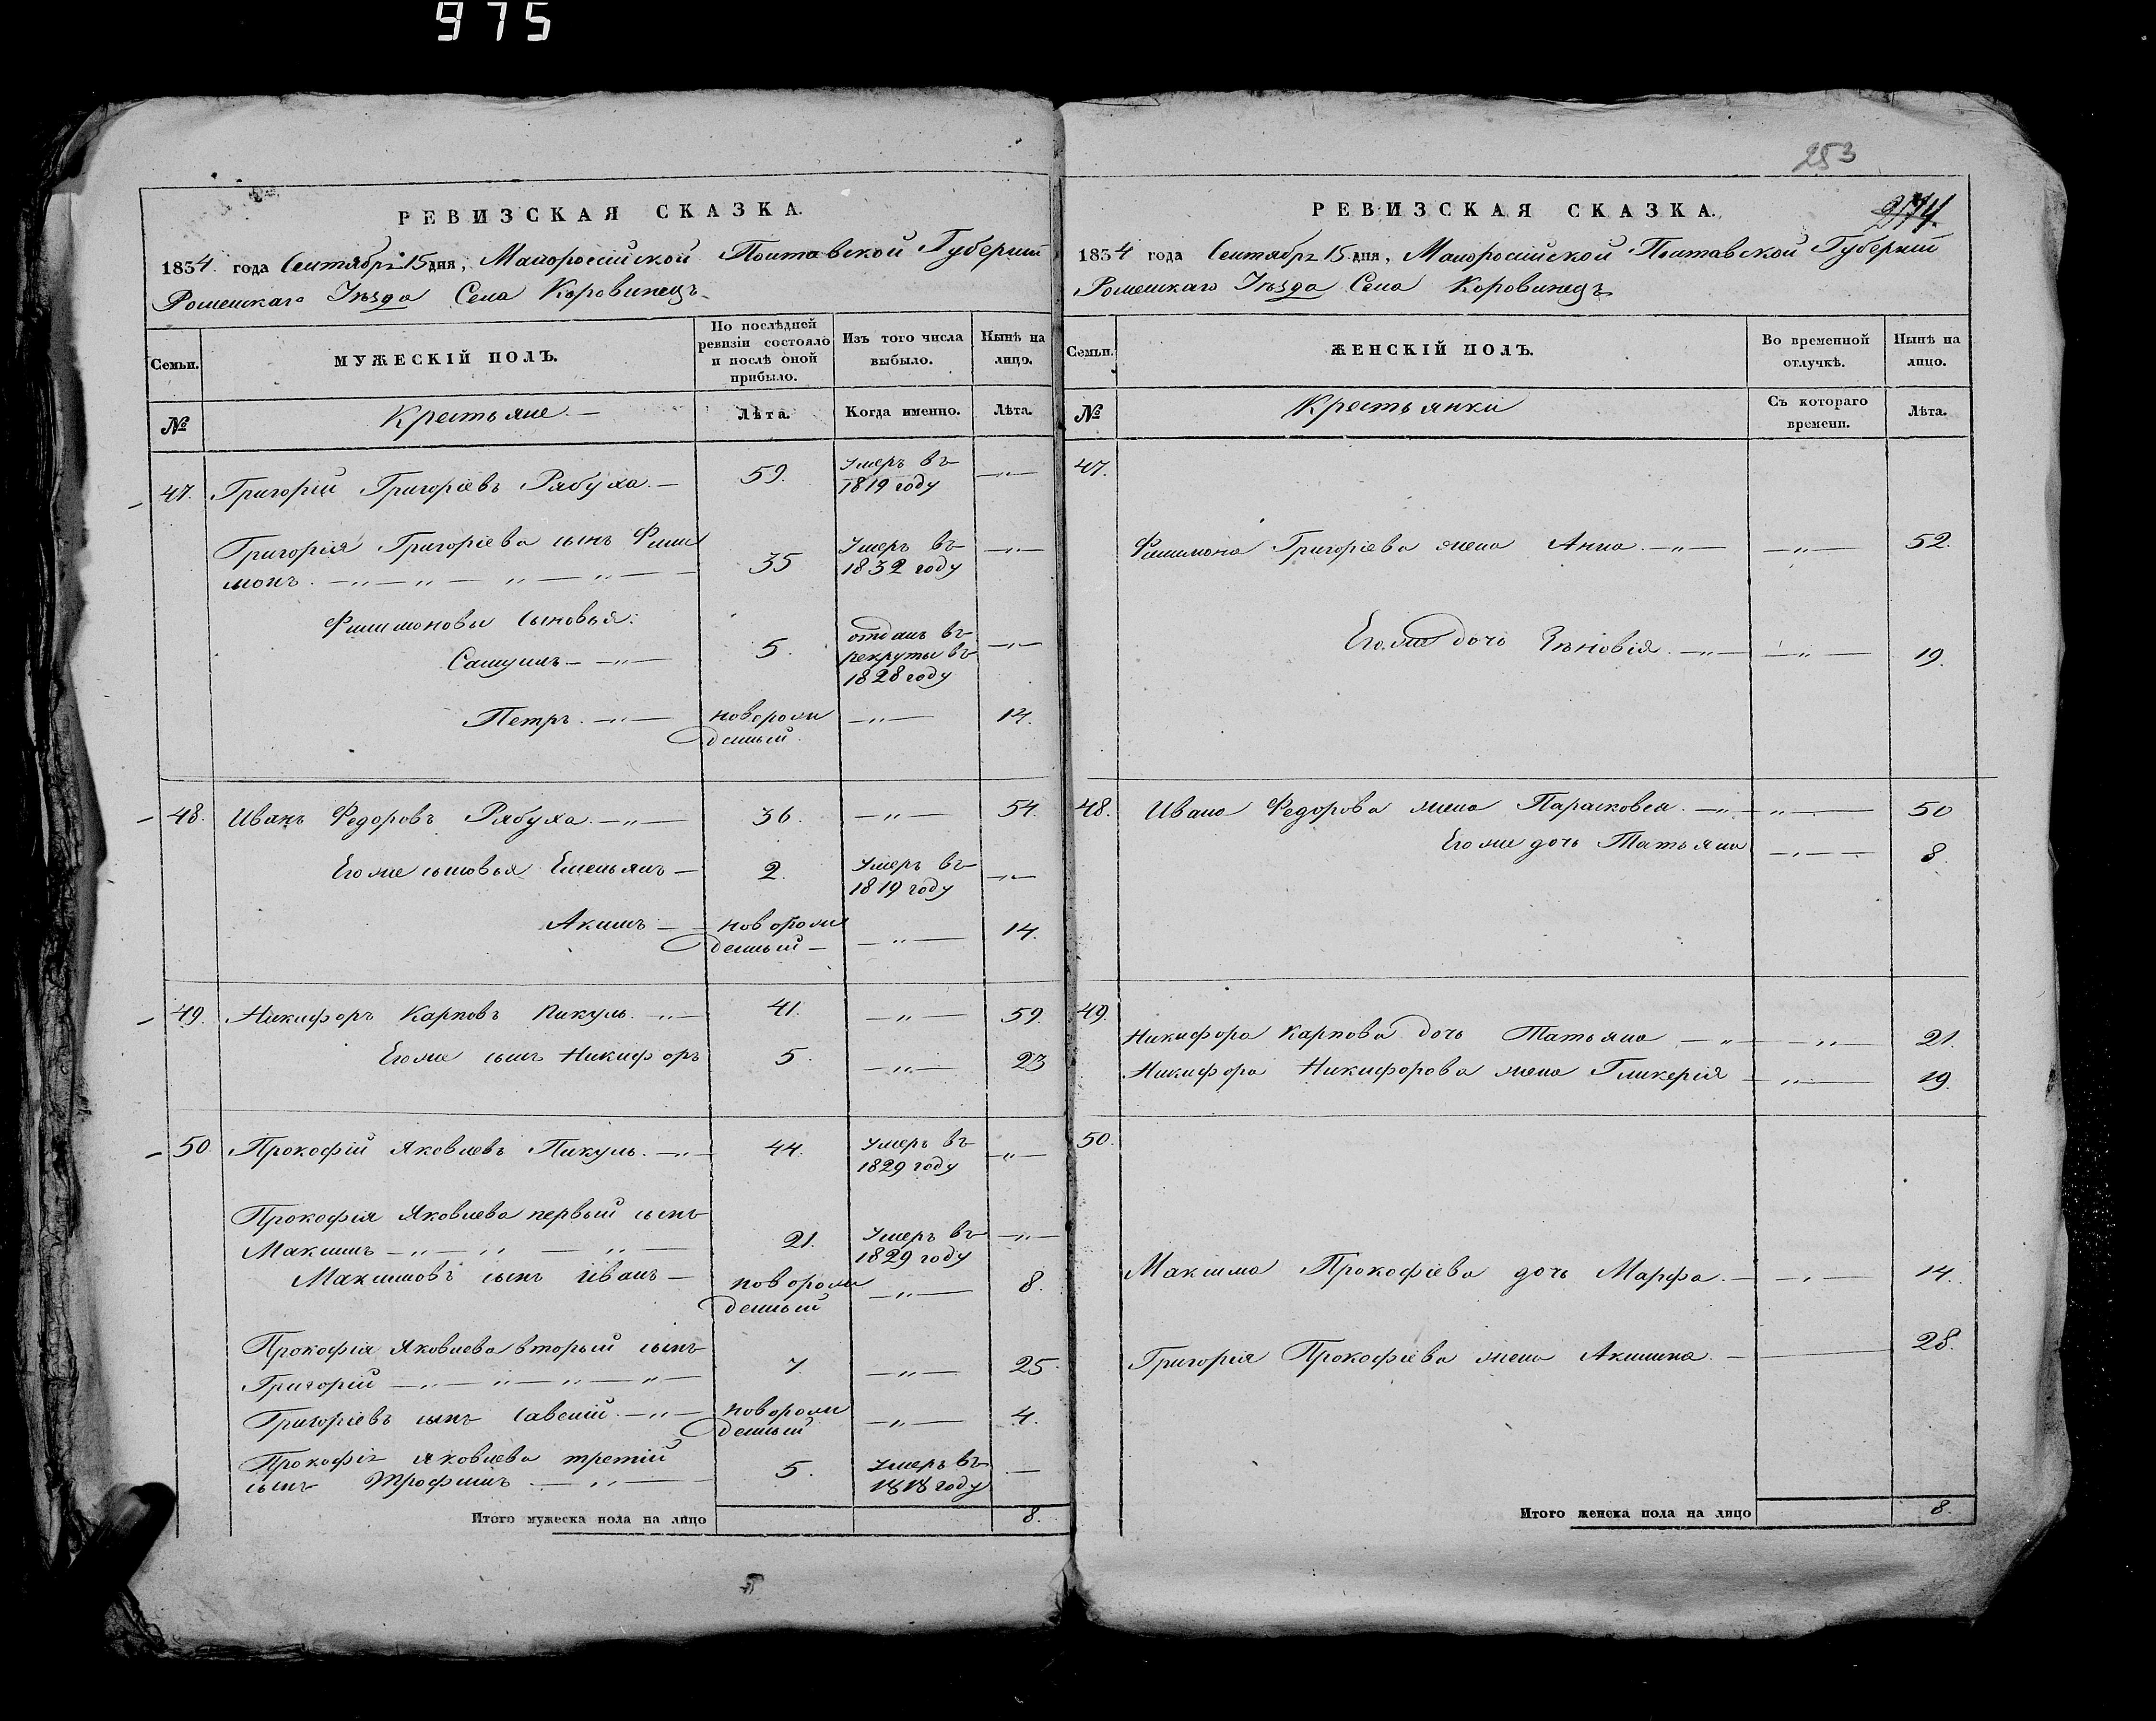 975
РЕВИЗСКАЯ СКАЗКА.
1834. года Сентября 15 дня, Малороссійской Полтавской Губерніи
Роменскаго Уѣзда Села Коровинецъ
Семьи.
МУЖЕСКІЙ ПОЛЪ.
По послѣдней ревизіи состояло и послѣ оной прибыло.
Изъ того числа выбыло.
Нынѣ на лицо.
№
Крестьяне. —
Лѣта.
Когда именно.
Лѣта.
47. Григорій Григоріевъ Рябуха. — 59. Умеръ въ 1819 году —„—
Григорія Григоріева сынъ Фили
монъ. —„—„—„—„— 35 Умеръ въ 1832 году —„—
Филимоновы сыновья:
Самуилъ — „ — 5. отданъ въ рекруты въ 1828 году —„—
Петръ. —„— новорожденный. —„— 14.
48. Иванъ Федоровъ Рябуха. —„— 36. —„— 54.
Его же сыновья Емельянъ — 2. Умеръ въ 1819 году —„—
Акимъ — новорожденный — —„— 14.
49. Никифоръ Карповъ Пикуль. —„— 41. —„— 59.
Его же сынъ Никифоръ 5. —„— 23
50. Прокофій Яковлевъ Пикуль. —„— 44. Умеръ въ 1829 году —„—
Прокофія Яковлева первый сынъ
Максимъ —„—„—„— 21. Умеръ въ 1829 году —„—
Максимовъ сынъ Иванъ — новорожденный —„— 8.
Прокофія Яковлева вторый сынъ
Григорій —„—„—„—„— 7. —„— 25.
Григоріевъ сынъ Савелій. —„— новорожденный —„— 4.
Прокофія Яковлева третій
сынъ Трофимъ —„— 5. Умеръ въ 1818 году —
Итого мужеска пола на лицо 8.
253
РЕВИЗСКАЯ СКАЗКА.
1834 года Сентября 15 дня, Малоросійской Полтавской Губерніи
Роменскаго Уѣзда Села Коровинецъ
Семьи.
ЖЕНСКІЙ ПОЛЪ.
Во временной отлучкѣ.
Нынѣ на лицо.
№
Крестьянки
Съ котораго времени.
Лѣта.
47.
Филимона Григоріева жена Анна. —„— —„— 52.
Его же дочь Зѣновія. —„— —„— 19.
48. Ивана Федорова жена Парасковея. —„— „— 50
Его же дочь Татьяна —„— 8.
49.
Никифора Карпова дочь Татьяна —„— —„— 21.
Никифора Никифорова жена Гликерія —„— 19.
50.
Максима Прокофіева дочь Марфа. — —„— 14.
Григорія Прокофіева жена Акилина. — — 28.
Итого женска пола на лицо 8.